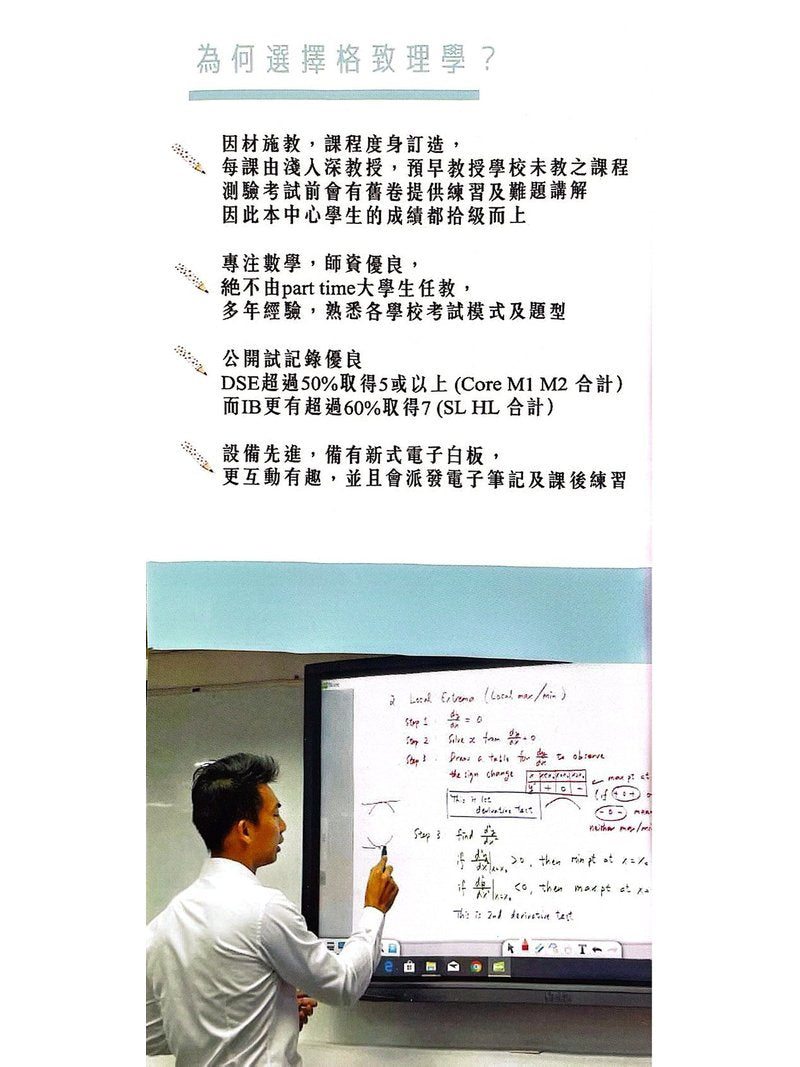 為何選擇格致理學？
因材施教，課程度身訂造，
每課由淺入深教授，預早教授學校未教之課程
測驗考試前會有舊卷提供練習及難題講解
因此本中心學生的成績都拾級而上
專注數學，師資優良，
絕不由part time大學生任教，
多年經驗，熟悉各學校考試模式及題型
公開試記錄優良
DSE超過50%取得5或以上 (Core M1 M2 合計）
而IB更有超過60%取得7 (SL HL 合計）
設備先進，備有新式電子白板，
更互動有趣，並且會派發電子筆記及課後練習
2 Local Extrema (Local max/min)
Step 1 dy/dx = 0
Step 2 Solve x from dy/dx = 0
Step 3 Draw a table for dy/dx to observe
the sign change
y' + 0 -
max pt at
This is 1st
derivative test
(if + 0 +
- 0 -
neither max/mi
Step 3 find d²y/dx²
if d²y/dx²|x=x₀ >0, then min pt at x=x₀
if d²y/dx²|x=x₀ <0, then max pt at x=
This is 2nd derivative test